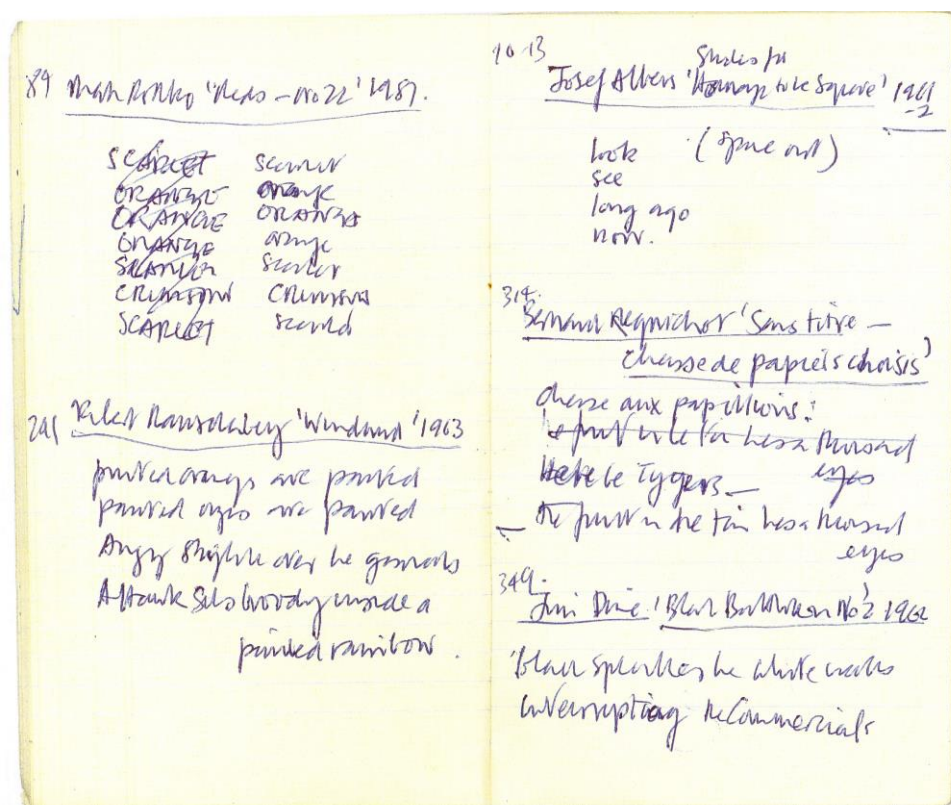 89 Mark Rothko 'Reds - No 22' 1957.
SCARLET scarlet
ORANGE orange
ORANGE ORANGE
ORANGE orange
SCARLET scarlet
CRIMSON CRIMSON
SCARLET scarlet
241 Robert Rauschenberg 'Windward' 1963
printed oranges are painted
painted are painted
Angry skyline over the
A Hawk sits broody inside a
painted rainbow.
10-13
Studies for
Josef Albers 'Homage to the Square' 1961
-2
look (space out)
see
long ago
now.
314.
Bernard Requichot 'Sans titre -
Chasse de papiers choisis'
chasse aux papillons:
the fruit in the tin has a thousand
eyes
Here be Tygers -
the fruit in the tin has a thousand
eyes
349.
Jim Dine 'Black Bathroom No 2' 1962
Black splashes the white walls
interrupting the Commercials